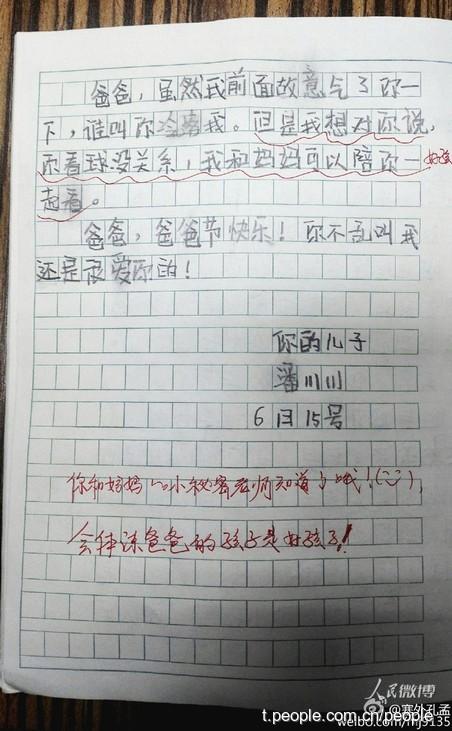 爸爸，虽然我前面故意气了你一
下，谁叫你冷落我。但是我想对你说，
你看球没关系，我和妈妈可以陪你一
好孩
起看。
爸爸，爸爸节快乐！你不乱叫我
还是很爱你的！
你的儿子
潘川川
6月15号
你和妈妈的小秘密老师知道了哦！(:)),
会体谅爸爸的孩子是好孩子！
人民微博
@塞外孔孟
t.people.com.cn/people
weibo.com/mj9135